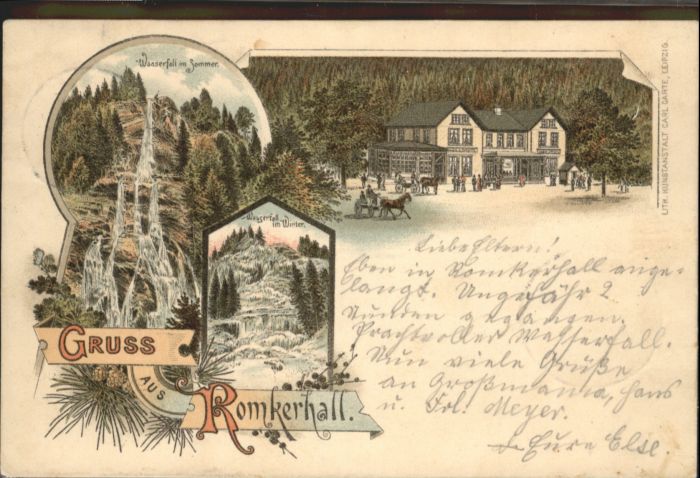 Wasserfall im Sommer.
LITH. KUNSTANSTALT CARL GARTE, LEIPZIG.
Wasserfall
im Winter.
GRUSS
AUS
Romkerhall.
Liebe Eltern!
Eben in Romkerhall ange-
langt. Ungefähr 2
Stunden gegangen.
Prachtvoller Wasserfall.
Nun viele Grüße
an Großmama, Hans
u. Frl. Meyer.
Eure Else.